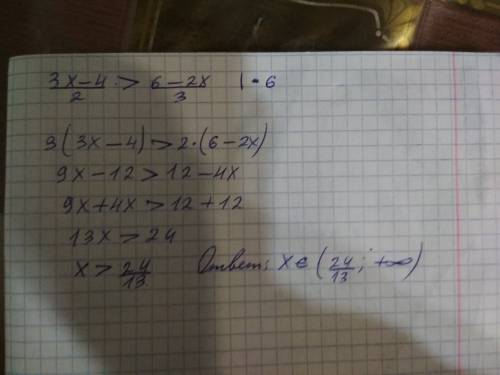 (3x-4)/2 > (6-2x)/3 | • 6
3(3x-4)>2•(6-2x)
9x-12>12-4x
9x+4x>12+12
13x>24
x>24/13 Ответ: x∈(24/13; +∞)